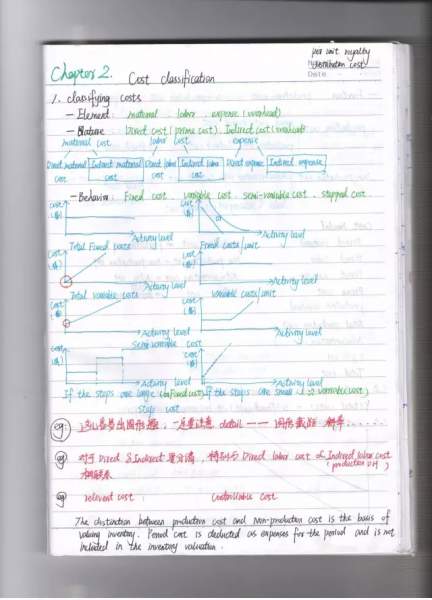 per unit royalty
Date
Chapter 2. Cost classification
1. classifying costs
— Element: material. labor. expense (overhead)
— Nature: Direct cost (prime cost). Indirect cost (overhead)
material cost labor cost expense
Direct material cost Indirect material cost Direct labor cost Indirect labor cost Direct expense Indirect expense
— Behavior: Fixed cost variable cost. semi-variable cost. stepped cost
cost ($) cost ($)
or
Activity level Activity level
Total Fixed costs Fixed costs/unit
cost ($) cost ($)
Activity level Activity level
Total variable costs Variable costs/unit
cost ($) cost ($)
Activity level Activity level
Semi-variable cost
cost ($) cost ($)
Activity level Activity level
If the steps are large (as fixed cost) If the steps are small (variable cost)
step cost
eg: 一定要注意 detail —— 图形截距 斜率......
eg 对于 Direct & Indirect 要分清, 特别与 Direct labor cost & Indirect labor cost
(production OH)
eg relevant cost controllable cost
The distinction between production cost and non-production cost is the basis of
valuing inventory. Period cost is deducted as expenses for the period and is not
included in the inventory valuation.